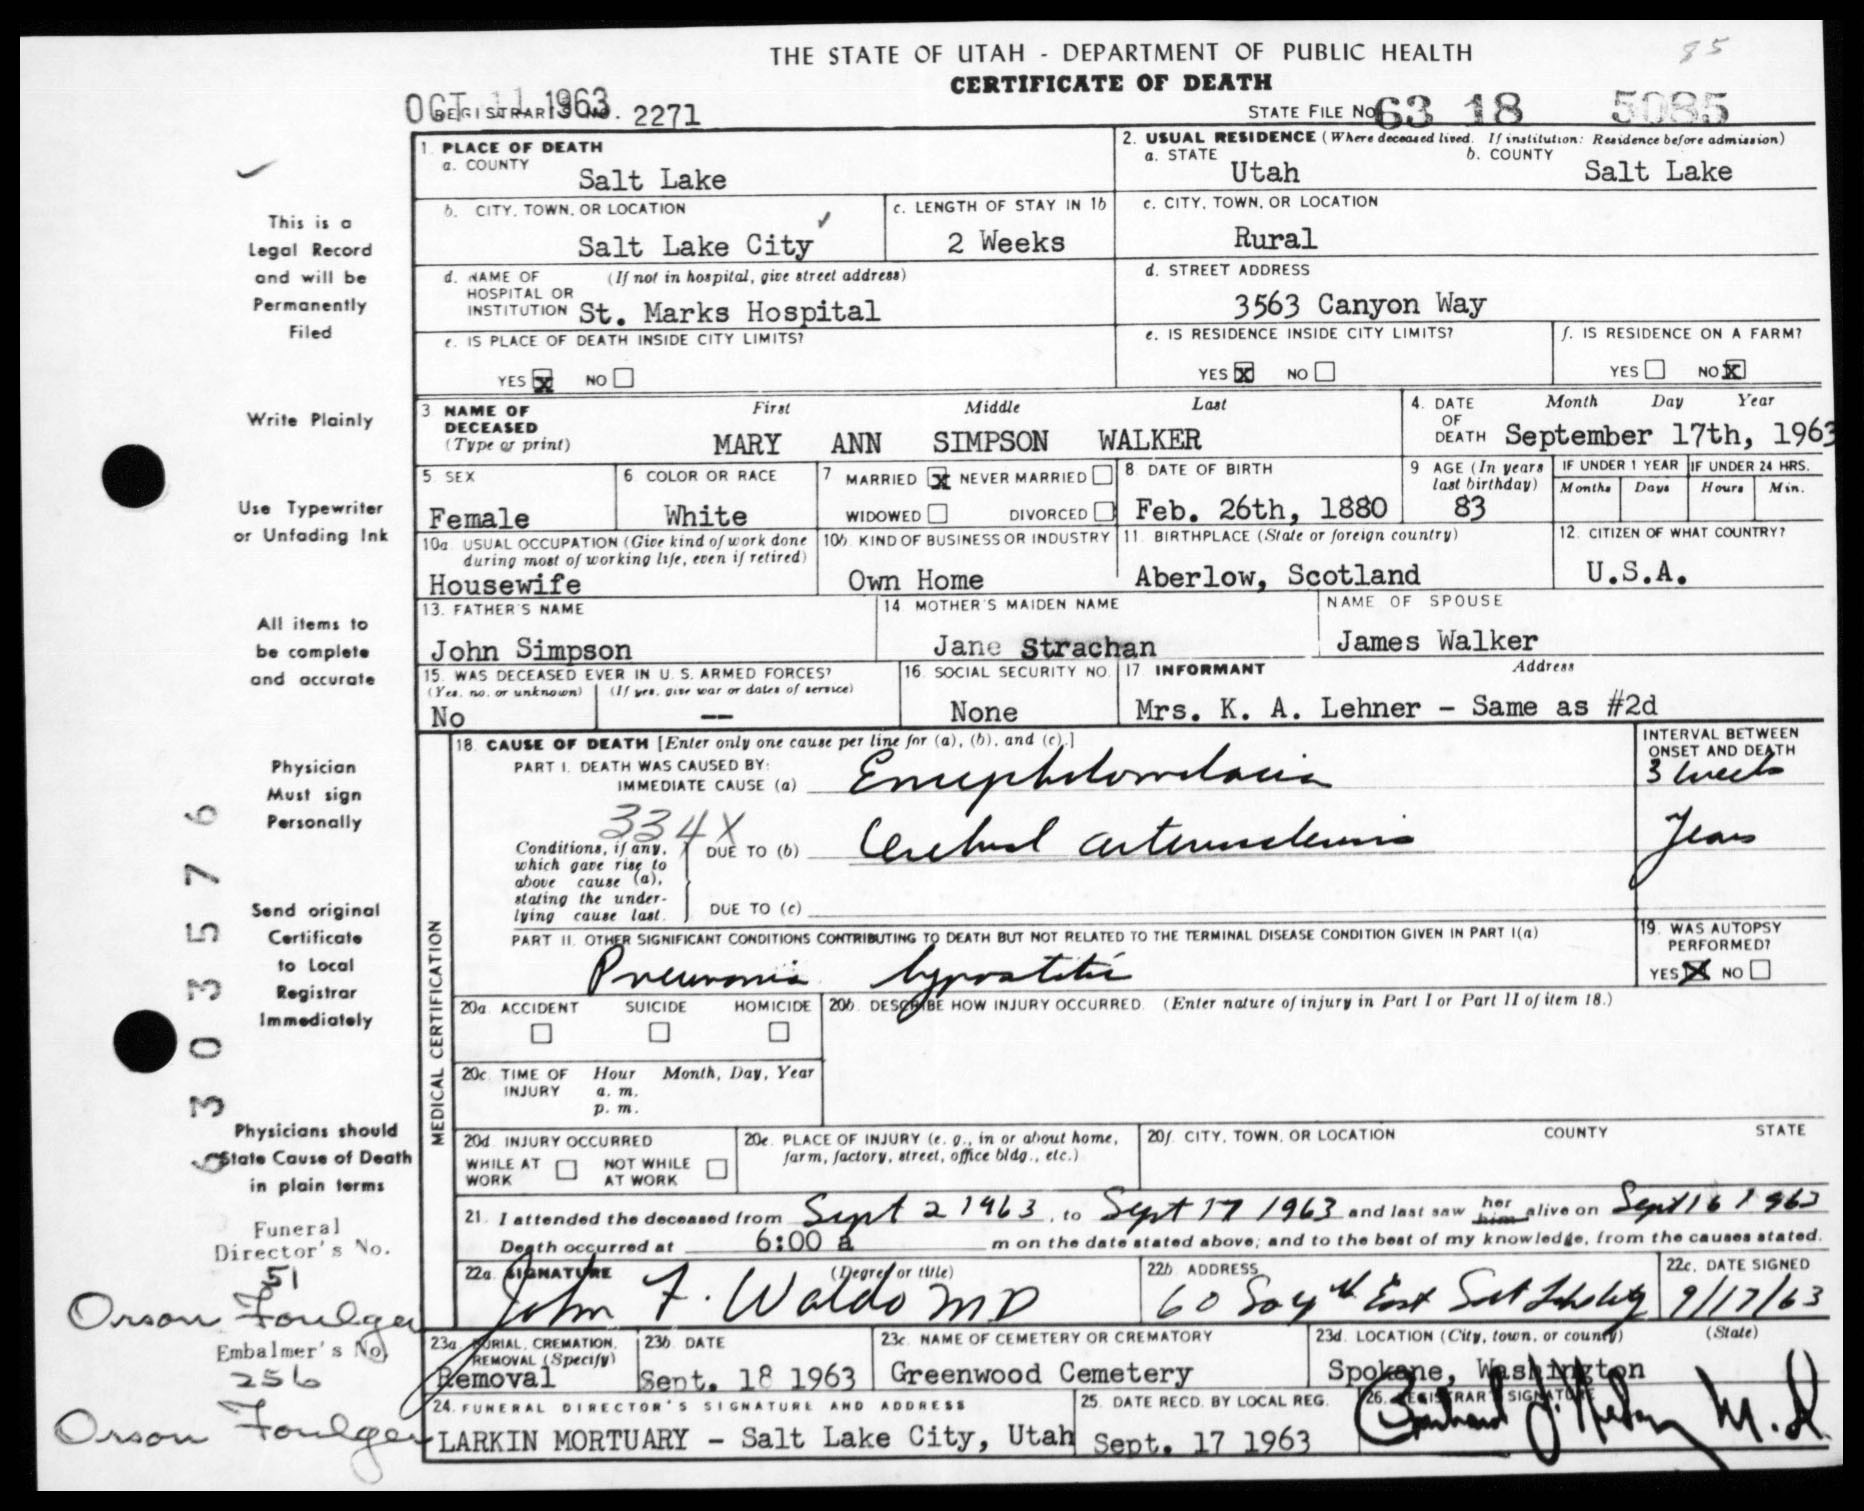 THE STATE OF UTAH - DEPARTMENT OF PUBLIC HEALTH
85
CERTIFICATE OF DEATH
OCT 11 1963
REGISTRAR'S NO. 2271
STATE FILE NO. 63 18 5085
1. PLACE OF DEATH
a. COUNTY
Salt Lake
2. USUAL RESIDENCE (Where deceased lived. If institution: Residence before admission)
a. STATE
Utah
b. COUNTY
Salt Lake
b. CITY, TOWN, OR LOCATION
Salt Lake City
c. LENGTH OF STAY IN 1b
2 Weeks
c. CITY, TOWN, OR LOCATION
Rural
d. NAME OF HOSPITAL OR INSTITUTION (If not in hospital, give street address)
St. Marks Hospital
d. STREET ADDRESS
3563 Canyon Way
e. IS PLACE OF DEATH INSIDE CITY LIMITS?
YES X NO
e. IS RESIDENCE INSIDE CITY LIMITS?
YES X NO
f. IS RESIDENCE ON A FARM?
YES NO X
3. NAME OF DECEASED (Type or print)
First Middle Last
MARY ANN SIMPSON WALKER
4. DATE OF DEATH
Month Day Year
September 17th, 1963
5. SEX
Female
6. COLOR OR RACE
White
7. MARRIED X NEVER MARRIED
WIDOWED DIVORCED
8. DATE OF BIRTH
Feb. 26th, 1880
9. AGE (In years last birthday)
83
IF UNDER 1 YEAR
Months Days
IF UNDER 24 HRS.
Hours Min.
10a. USUAL OCCUPATION (Give kind of work done during most of working life, even if retired)
Housewife
10b. KIND OF BUSINESS OR INDUSTRY
Own Home
11. BIRTHPLACE (State or foreign country)
Aberlow, Scotland
12. CITIZEN OF WHAT COUNTRY?
U.S.A.
13. FATHER'S NAME
John Simpson
14. MOTHER'S MAIDEN NAME
Jane Strachan
NAME OF SPOUSE
James Walker
15. WAS DECEASED EVER IN U. S. ARMED FORCES?
(Yes, no, or unknown) (If yes, give war or dates of service)
No --
16. SOCIAL SECURITY NO.
None
17. INFORMANT Address
Mrs. K. A. Lehner - Same as #2d
MEDICAL CERTIFICATION
18. CAUSE OF DEATH [Enter only one cause per line for (a), (b), and (c).]
INTERVAL BETWEEN ONSET AND DEATH
PART I. DEATH WAS CAUSED BY:
IMMEDIATE CAUSE (a) Encephalomalacia
3 weeks
334X
Conditions, if any, which gave rise to above cause (a), stating the underlying cause last.
DUE TO (b) Cerebral arteriosclerosis
Years
DUE TO (c)
PART II. OTHER SIGNIFICANT CONDITIONS CONTRIBUTING TO DEATH BUT NOT RELATED TO THE TERMINAL DISEASE CONDITION GIVEN IN PART I(a)
Pneumonia hypostatic
19. WAS AUTOPSY PERFORMED?
YES X NO
20a. ACCIDENT SUICIDE HOMICIDE
20b. DESCRIBE HOW INJURY OCCURRED. (Enter nature of injury in Part I or Part II of item 18.)
20c. TIME OF INJURY Hour Month, Day, Year
a. m.
p. m.
20d. INJURY OCCURRED
WHILE AT WORK NOT WHILE AT WORK
20e. PLACE OF INJURY (e. g., in or about home, farm, factory, street, office bldg., etc.)
20f. CITY, TOWN, OR LOCATION COUNTY STATE
21. I attended the deceased from Sept 2 1963, to Sept 17 1963 and last saw her him alive on Sept 16 1963
Death occurred at 6:00 a m on the date stated above; and to the best of my knowledge, from the causes stated.
22a. SIGNATURE (Degree or title)
John F. Waldo MD
22b. ADDRESS
60 So 4th East Salt Lake City
22c. DATE SIGNED
9/17/63
23a. BURIAL, CREMATION, REMOVAL (Specify)
Removal
23b. DATE
Sept. 18 1963
23c. NAME OF CEMETERY OR CREMATORY
Greenwood Cemetery
23d. LOCATION (City, town, or county) (State)
Spokane, Washington
24. FUNERAL DIRECTOR'S SIGNATURE AND ADDRESS
LARKIN MORTUARY - Salt Lake City, Utah
25. DATE RECD. BY LOCAL REG.
Sept. 17 1963
26. REGISTRAR'S SIGNATURE
M.D.
This is a
Legal Record
and will be
Permanently
Filed
Write Plainly
Use Typewriter
or Unfading Ink
All items to
be complete
and accurate
Physician
Must sign
Personally
Send original
Certificate
to Local
Registrar
Immediately
Physicians should
State Cause of Death
in plain terms
6303576
Funeral
Director's No.
51
Orson Foulger
Embalmer's No.
256
Orson Foulger